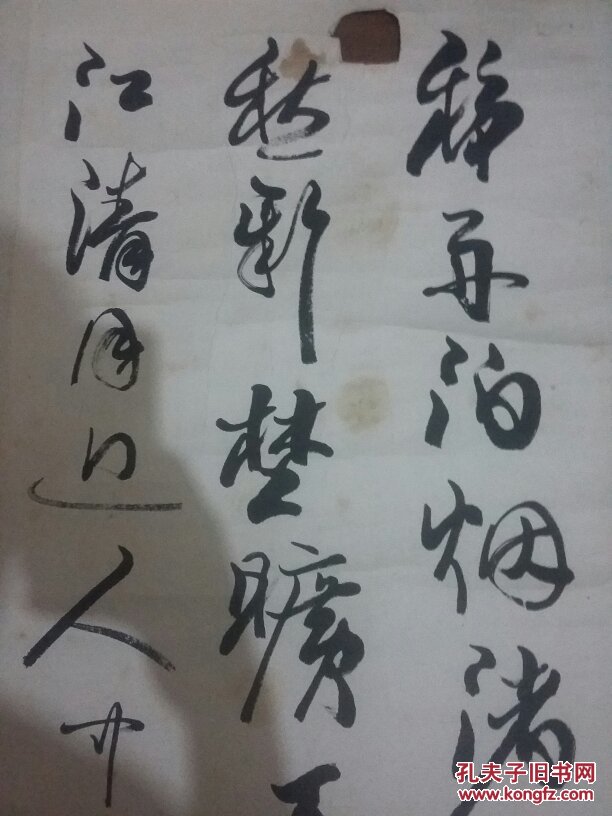 移舟泊烟渚
愁新埜曠
江清月近人
孔夫子旧书网
www.kongfz.com